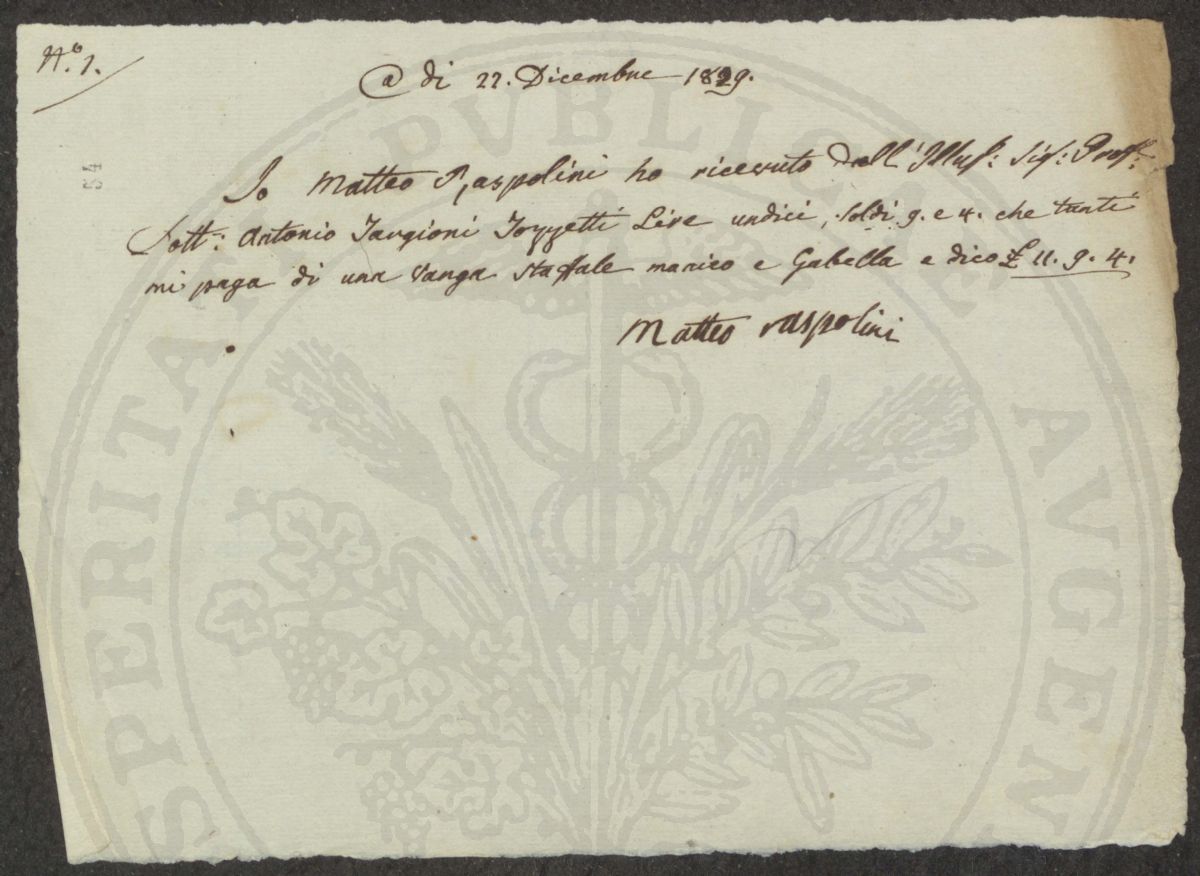 N.o 1.
@ di 22. Dicembre 1829.
54
Io Matteo Raspolini ho ricevuto dall' Illus.: Sig.: Prof.:
Dott.: Antonio Targioni Tozzetti Lire undici, soldi 9. e 4. che tanti
mi paga di una vanga Staffale manico e Gabella e dico £ 11. 9. 4.
Matteo raspolini
SPERITATI PVBLICAE AVGEN